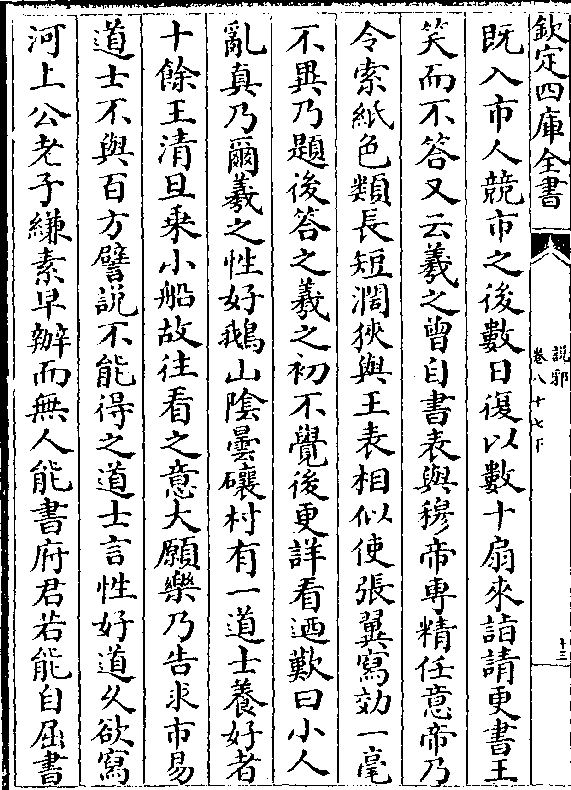 欽定四庫全書
說郛
卷八十七下
十三
既入市人競市之後數日復以數十扇來詣請更書王
笑而不答又云羲之曾自書表與穆帝專精任意帝乃
令索紙色類長短濶狹與王表相似使張翼寫効一毫
不異乃題後答之羲之初不覺後更詳看迺歎曰小人
亂真乃爾羲之性好鵝山陰曇礰村有一道士養好者
十餘王清旦乗小船故往看之意大願樂乃告求市易
道士不與百方譬說不能得之道士言性好道久欲寫
河上公老子縑素早辦而無人能書府君若能自屈書